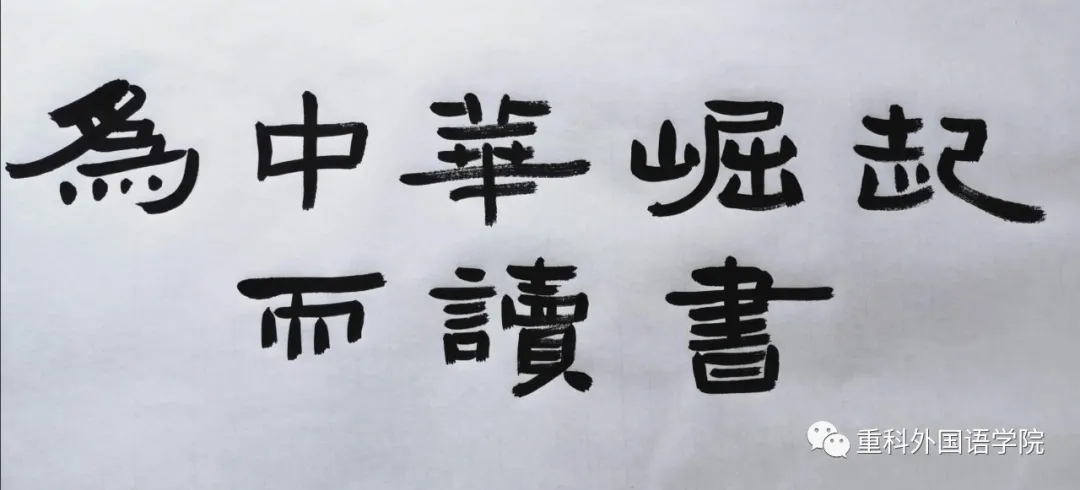 為中華崛起
而讀書
重科外国语学院